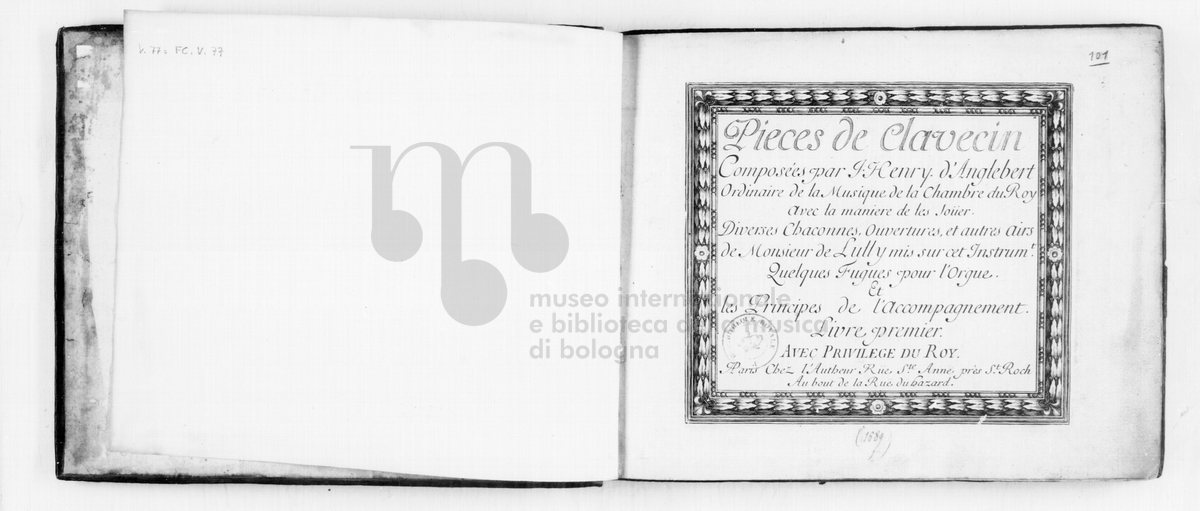 V. 77= FC. V. 77
101
Pieces de Clavecin
Composées par J Henry d'Anglebert
Ordinaire de la Musique de la Chambre du Roy
Avec la maniere de les Joüer.
Diverses Chaconnes, Ouvertures, et autres Airs
de Monsieur de Lully mis sur cet Instrumt.
Quelques Fugues pour l'Orgue.
Et
les Principes de l'Accompagnement.
Livre premier.
AVEC PRIVILEGE DU ROY.
A Paris Chez l'Autheur Rue, Ste. Anne, près St. Roch
Au bout de la Rue, du hazard.
(1689)
museo internazionale
e biblioteca della musica
di bologna